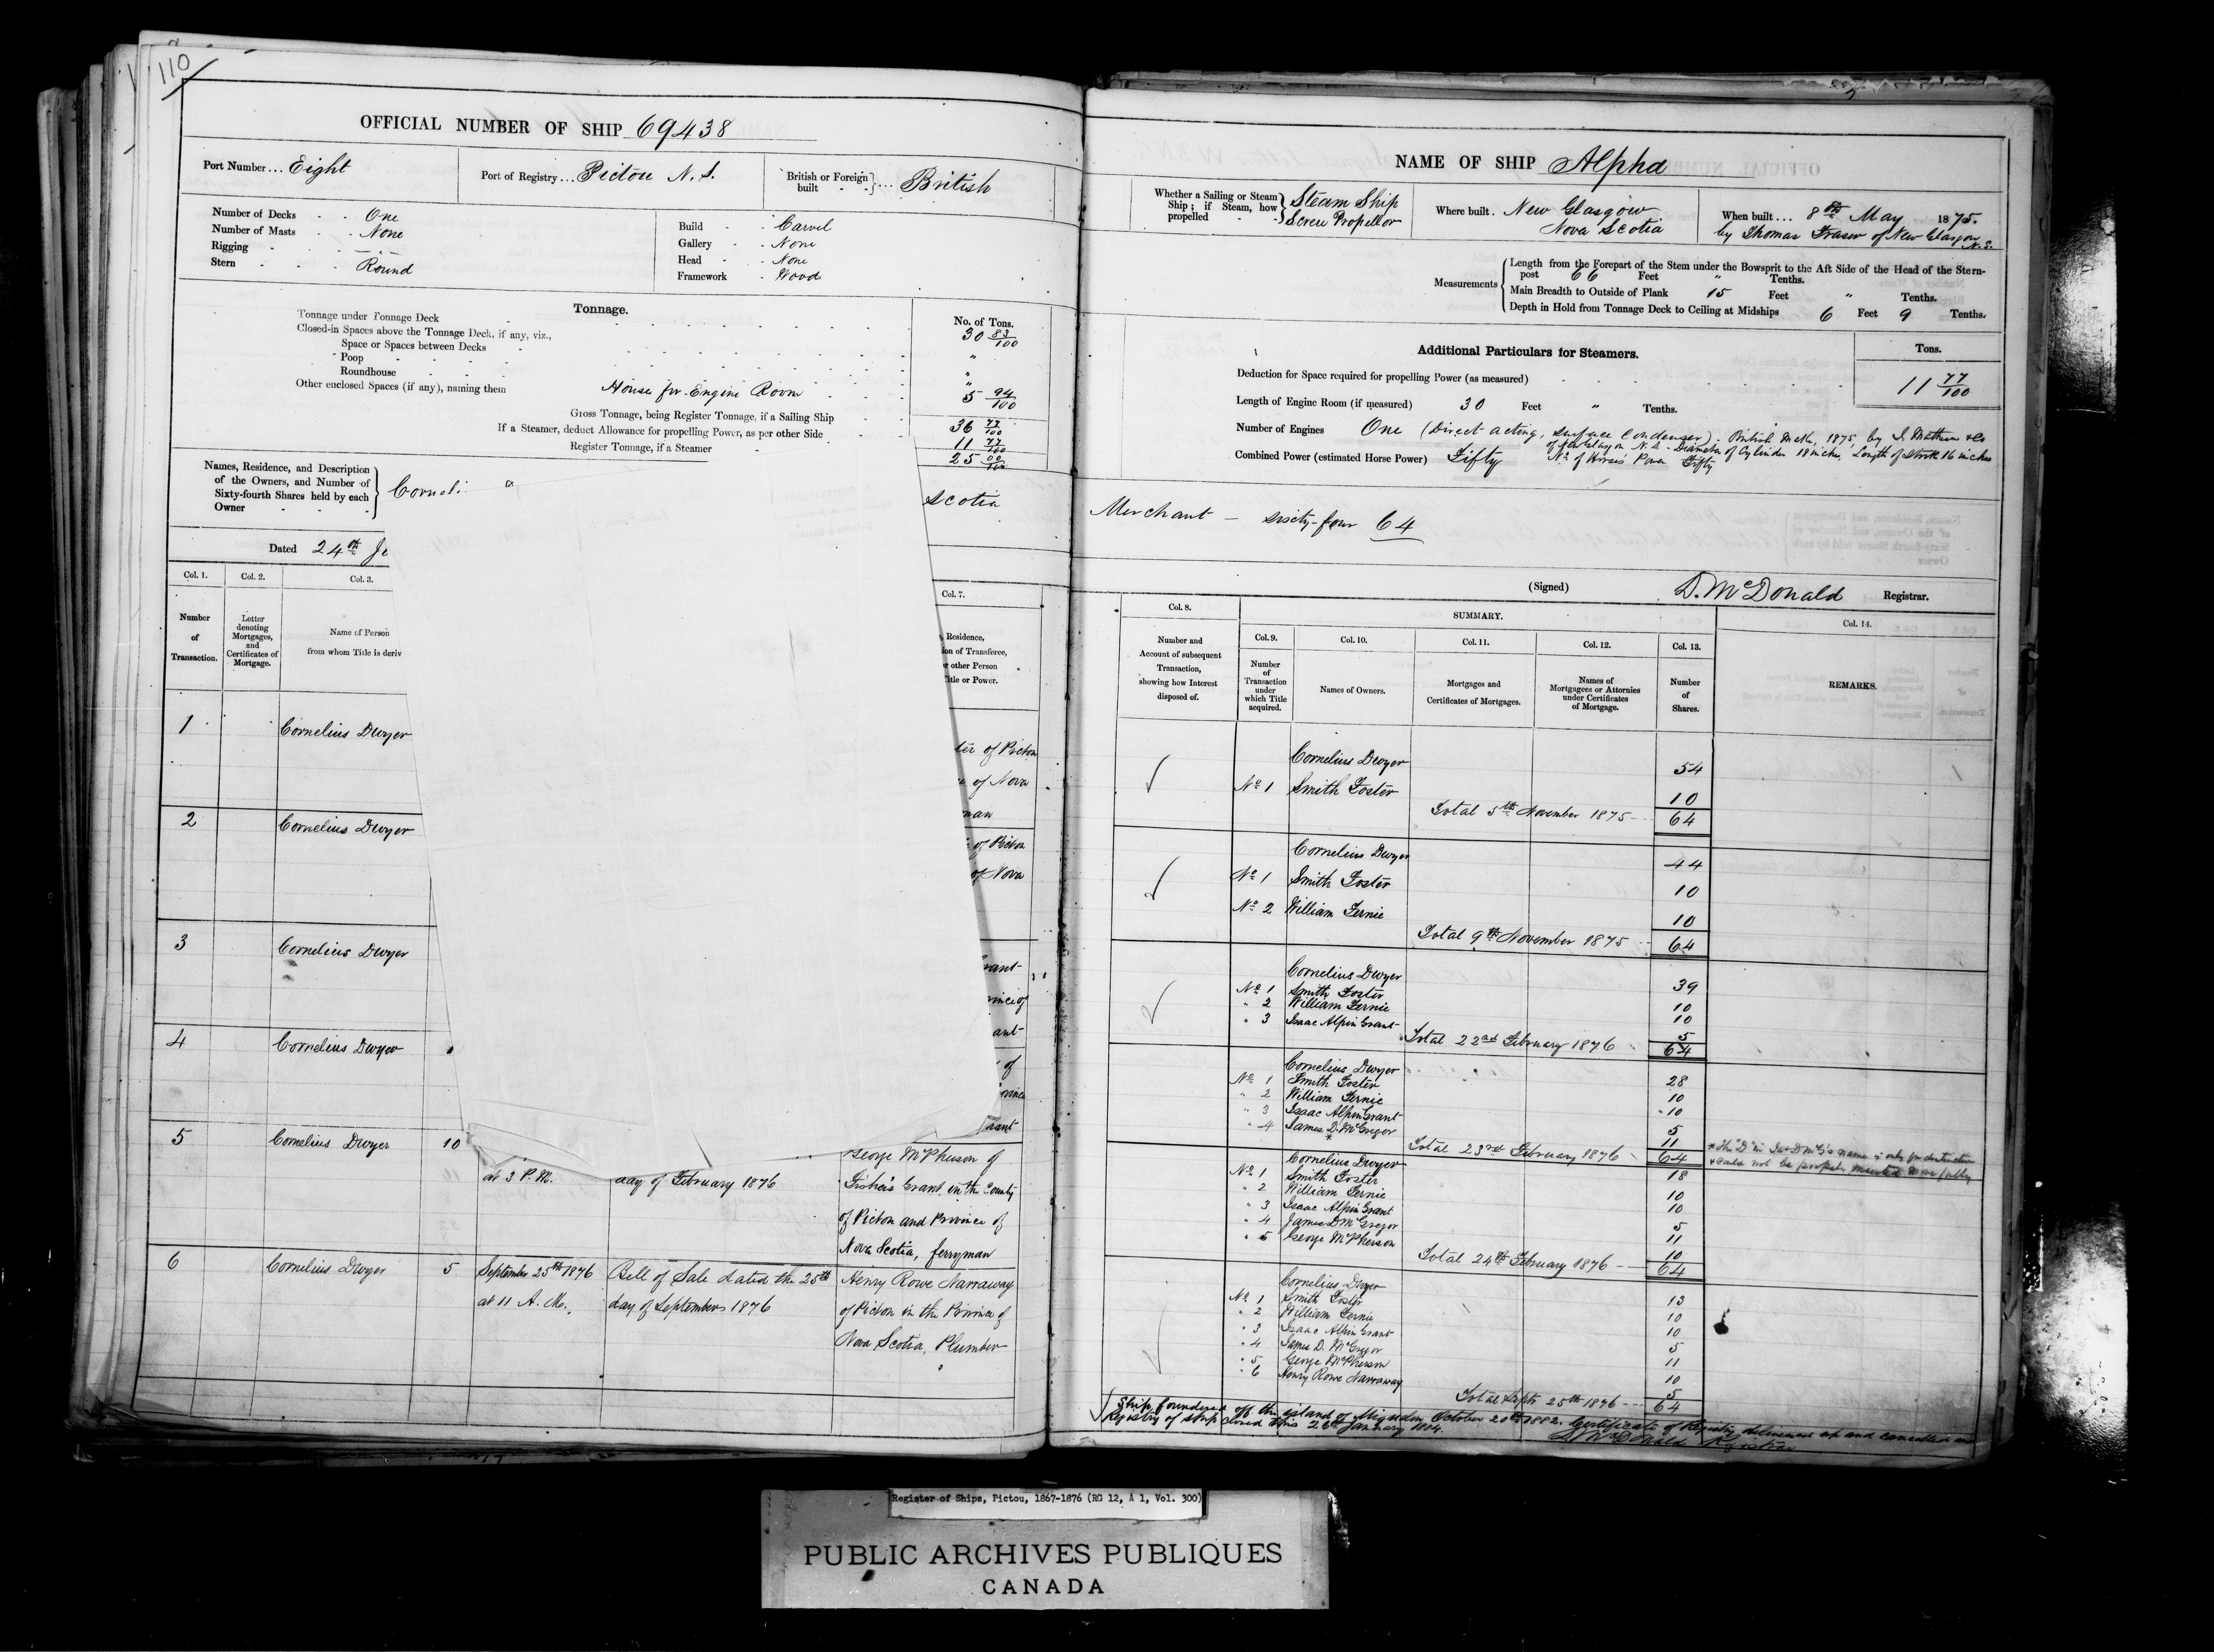 110
OFFICIAL NUMBER OF SHIP 69438
Port Number ... Eight
Port of Registry ... Pictou N. S.
British or Foreign built } ... British
Number of Decks - - One
Number of Masts - - None
Rigging - - -
Stern - - - Round
Build - - Carvel
Gallery - - None
Head - - None
Framework - Wood
Tonnage.
No. of Tons.
Tonnage under Tonnage Deck 30 83/100
Closed-in Spaces above the Tonnage Deck, if any, viz.,
Space or Spaces between Decks "
Poop "
Roundhouse "
Other enclosed Spaces (if any), naming them House for Engine Room 5 94/100
Gross Tonnage, being Register Tonnage, if a Sailing Ship 36 77/100
If a Steamer, deduct Allowance for propelling Power, as per other Side 11 77/100
Register Tonnage, if a Steamer 25 00/100
Names, Residence, and Description
of the Owners, and Number of
Sixty-fourth Shares held by each
Owner
Corneli
Scotia
Dated 24th Je
Col. 1.
Col. 2.
Col. 3.
Col. 7.
Number
of
Transaction.
Letter
denoting
Mortgages,
and
Certificates of
Mortgage.
Name of Person
from whom Title is deriv
, Residence,
ion of Transferee,
r other Person
itle or Power.
1 Cornelius Dwyer
ter of Pictou
e of Nova
man
2 Cornelius Dwyer
of Pictou
of Nova
3 Cornelius Dwyer
rant
ince of
ant
4 Cornelius Dwyer
of
ovince
rant
5 Cornelius Dwyer 10
at 3 P.M. day of February 1876
George McPherson of
Fisher's Grant, in the County
of Pictou and Province of
Nova Scotia, ferryman
6 Cornelius Dwyer 5 September 25th 1876 Bill of Sale dated the 25th Henry Rowe Narraway
at 11 A. M. day of September 1876 of Pictou in the Province of
Nova Scotia, Plumber
NAME OF SHIP Alpha
Whether a Sailing or Steam
Ship; if Steam, how
propelled
Steam Ship
Screw Propellor
Where built. New Glasgow
Nova Scotia
When built ... 8th May 1875.
by Thomas Fraser of New Glasgow
N.S.
Measurements
Length from the Forepart of the Stem under the Bowsprit to the Aft Side of the Head of the Stern-
post 66 Feet " Tenths.
Main Breadth to Outside of Plank 15 Feet " Tenths.
Depth in Hold from Tonnage Deck to Ceiling at Midships 6 Feet 9 Tenths.
Additional Particulars for Steamers.
Tons.
Deduction for Space required for propelling Power (as measured) 11 77/100
Length of Engine Room (if measured) 30 Feet " Tenths.
Number of Engines One (Direct acting, surface Condenser). British Make, 1875, by I. Matheson & Co
of New Glasgow N.S. - Diameter of Cylinder 18 inches, Length of Stroke 16 inches
Combined Power (estimated Horse Power) Fifty No. of Horses Power Fifty
Merchant - sixty-four 64
(Signed) D. McDonald Registrar.
Col. 8.
SUMMARY.
Col. 14.
Number and
Account of subsequent
Transaction,
showing how Interest
disposed of.
Col. 9.
Col. 10.
Col. 11.
Col. 12.
Col. 13.
Number
of
Transaction
under
which Title
acquired.
Names of Owners.
Mortgages and
Certificates of Mortgages.
Names of
Mortgagees or Attornies
under Certificates
of Mortgage.
Number
of
Shares.
REMARKS.
Cornelius Dwyer 54
No 1 Smith Foster 10
Total 5th November 1875 64
Cornelius Dwyer 44
No 1 Smith Foster 10
No 2 William Fernie 10
Total 9th November 1875 64
Cornelius Dwyer 39
No 1 Smith Foster 10
" 2 William Fernie 10
" 3 Isaac Alpin Grant 5
Total 22nd February 1876 64
Cornelius Dwyer 28
No 1 Smith Foster 10
" 2 William Fernie 10
" 3 Isaac Alpin Grant 5
" 4 James D. McGregor 11
Total 23rd February 1876 64
Cornelius Dwyer 18
No 1 Smith Foster 10
" 2 William Fernie 10
" 3 Isaac Alpin Grant 5
" 4 James D McGregor 11
" 5 George McPherson 10
Total 24th February 1876 64
Cornelius Dwyer 13
No 1 Smith Foster 10
" 2 William Fernie 10
" 3 Isaac Alpin Grant 5
" 4 James D. McGregor 11
" 5 George McPherson 10
" 6 Henry Rowe Narraway 5
Total Septr 25th 1876 64
Ship foundered off the island of Miquelon October 20th 1882. Certificate of Registry delivered up and cancelled
Registry of ship closed this 26th January 1884.
D. McDonald Registrar
Register of Ships, Pictou, 1867-1876 (RG 12, A 1, Vol. 300)
PUBLIC ARCHIVES PUBLIQUES
CANADA